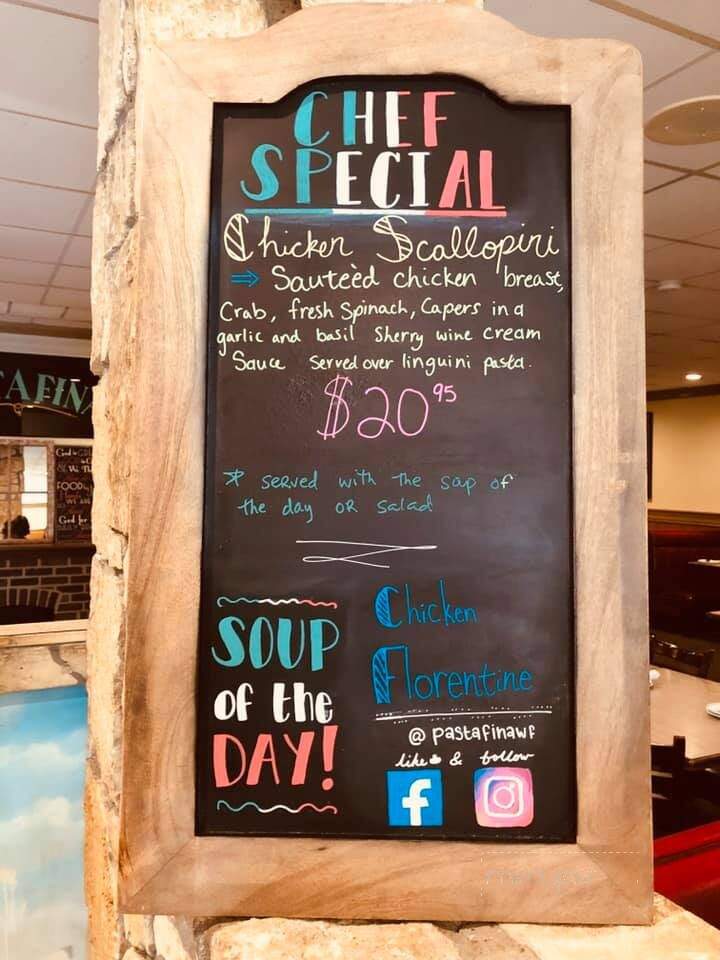 CHEF
SPECIAL
Chicken Scallopini
⇒ Sauteèd chicken breast,
Crab, fresh Spinach, Capers in a
garlic and basil Sherry wine cream
Sauce Served over linguini pasta.
$20 95
* served with the sap of
the day OR Salad
SOUP
of the
DAY!
Chicken
Florentine
@ pastafinawf
like & follow
f
AFINA
FOOD